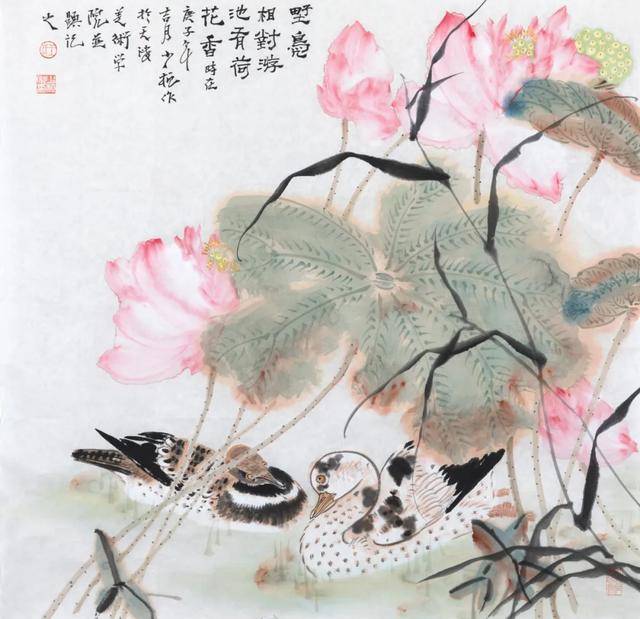 野鳧
相對游
池有荷
花香時在
庚子年
吉月少梅作
於天淺
美術学
院並
題記
之